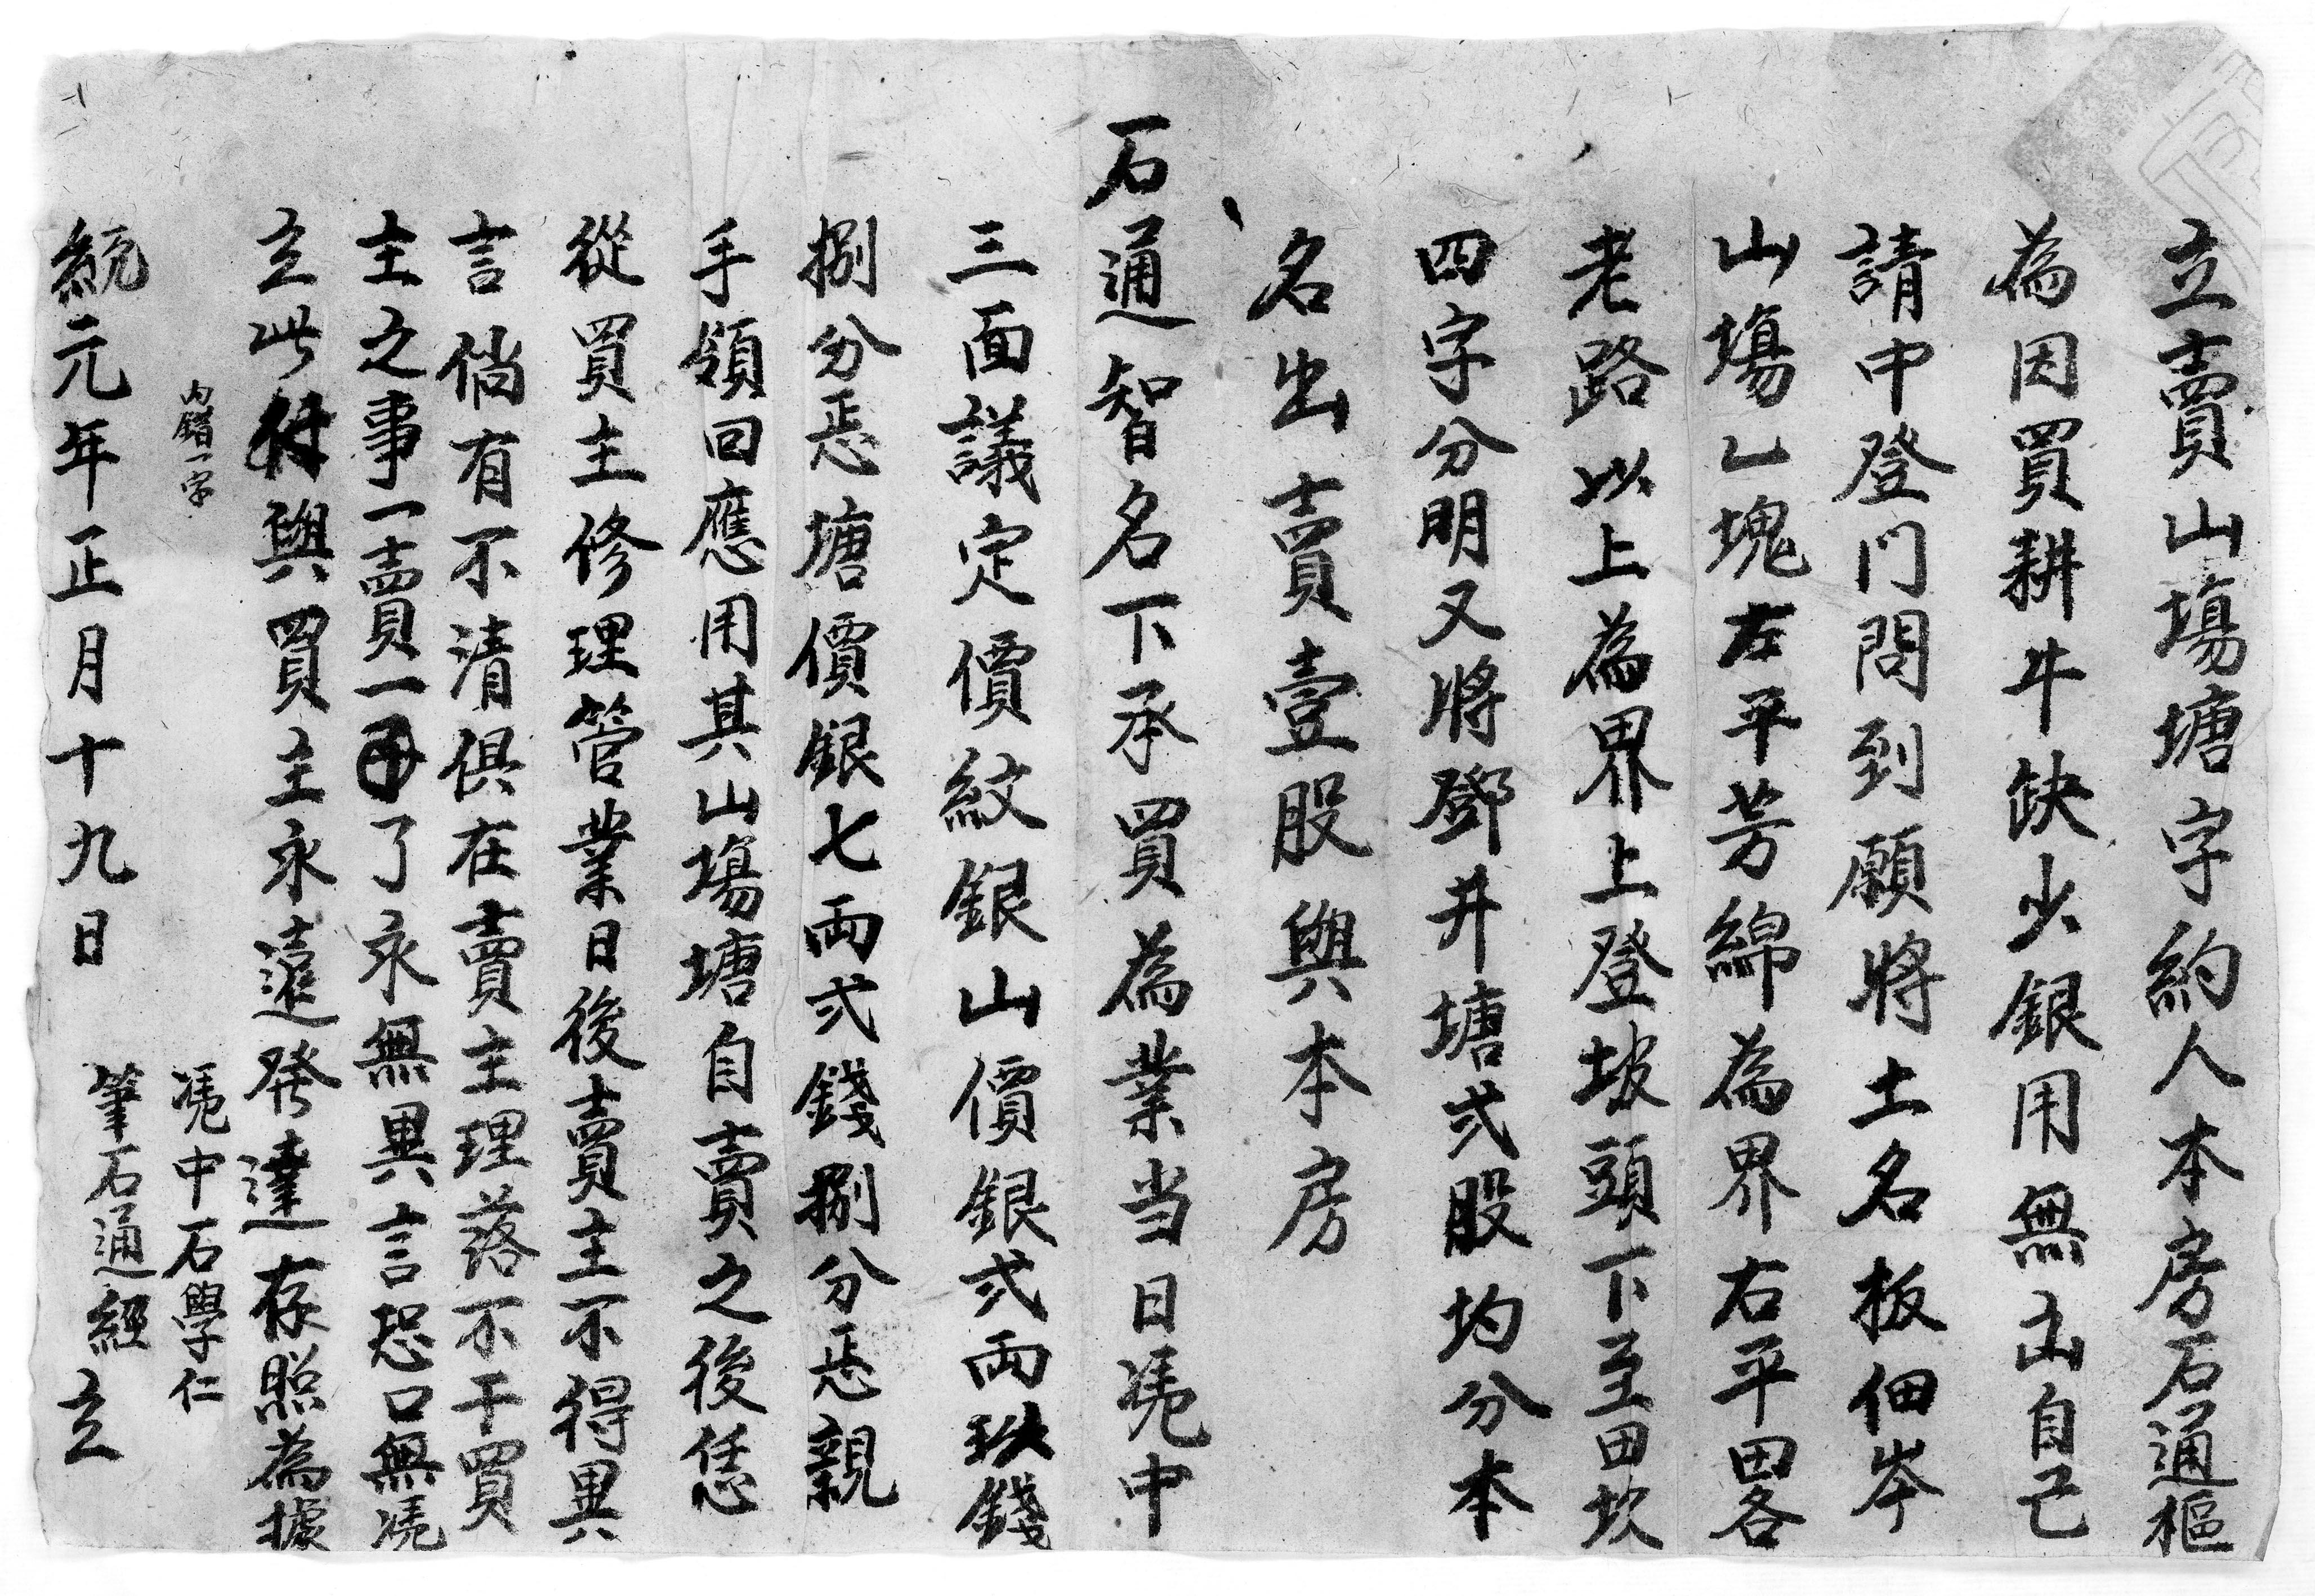 立賣山塲塘字約人本房石通樞
為因買耕牛缺少銀用無出自己
請中登門問到願將土名板佃岑
山塲乚塊左平芳綿為界右平田各
老路以上為界上登坡頭下至田坎
四字分明又將鄧井塘弍股均分本
名出賣壹股與本房
石通智名下承買為業当日凴中
三面議定價紋銀山價銀弍両玖錢
捌分㤙塘價銀七両弍錢捌分㤙親
手領回應用其山塲塘自賣之後恁
從買主修理管業日後賣主不得異
言倘有不清俱在賣主理落不干買
主之事一賣一了永無異言恐口無凴
立此付與買主永遠発達存照為據
内錯一字
凴中石學仁
筆石通經 立
統元年正月十九日